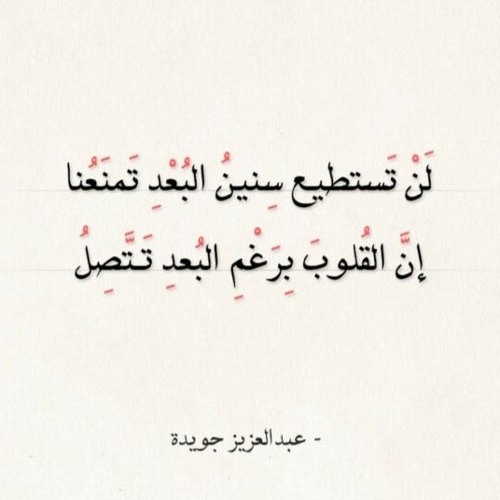 لَنْ تَستطيع سِنينُ البُعْدِ تَمنَعُنا
إنَّ القُلوبَ بِرَغْمِ البُعدِ تَتَّصِلُ
- عبدالعزيز جويدة